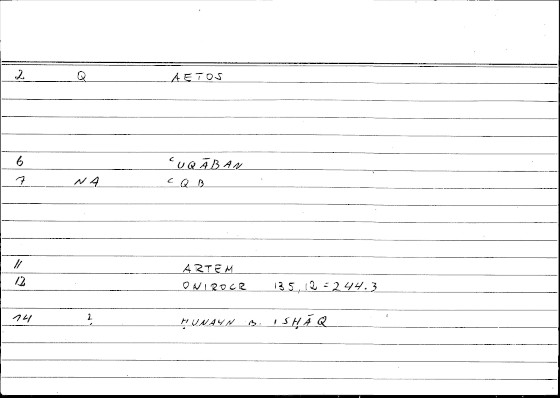 2 Q AETOS
6 ʿUQĀBAN
7 NA ʿQB
11 ARTEM
12 ONIROCR 135,12=244.3
14 ? ḤUNAYN B. ISḤĀQ